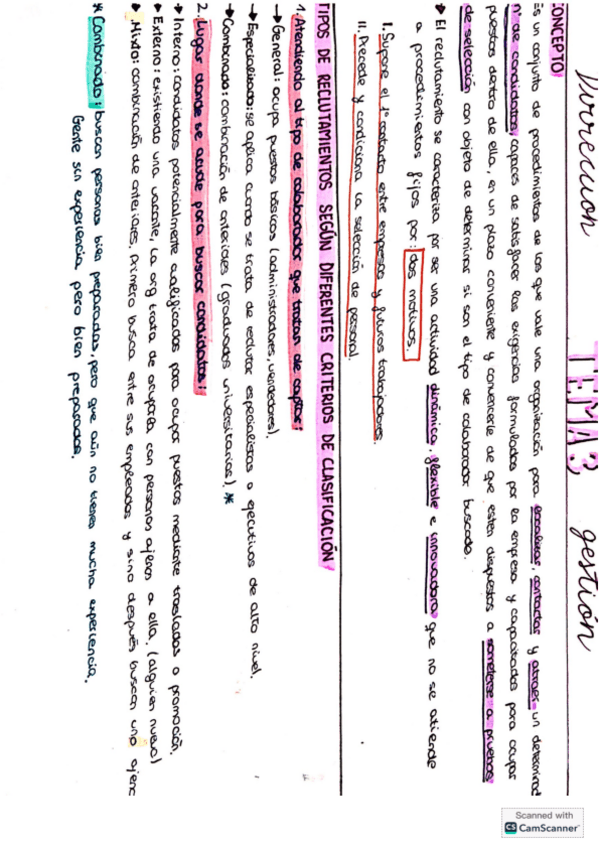 Dirección TEMA 3 gestión
CONCEPTO
Es un conjunto de procedimientos de los que vale una organización para encontrar, contactar y atraer un determinad
nº de candidatos, capaces de satisfacer las exigencias formuladas por la empresa y capacitados para ocupar
puestos dentro de ella, en un plazo conveniente y convencerle de que estén dispuestos a someterse a pruebas
de selección con objeto de determinar si son el tipo de colaborador buscado.
El reclutamiento se caracteriza por ser una actividad dinámica, flexible e innovadora que no se atiende
a procedimientos fijos por: dos motivos.
I. Supone el 1º contacto entre empresas y futuros trabajadores.
II. Precede y condiciona la selección de personal.
TIPOS DE RECLUTAMIENTOS SEGÚN DIFERENTES CRITERIOS DE CLASIFICACIÓN
1. Atendiendo al tipo de colaborador que tratan de captar:
→ General: ocupa puestos básicos (administradores, vendedores).
→ Especializado: se aplica cuando se trata de reclutar especialistas o ejecutivos de alto nivel.
→ Combinado: combinación de anteriores (graduados universitarios). *
2. Lugar donde se acude para buscar candidatos:
→ Interno: candidatos potencialmente cualificados para ocupar puestos mediante traslados o promoción.
Externo: existiendo una vacante, la org trata de ocuparla con personas ajenas a ella. (alguien nuevo)
Mixto: combinación de anteriores. Primero busca entre sus empleados y sino después buscan uno ajeno
* Combinado: buscan personas bien preparadas, pero que aún no tienen mucha experiencia.
Gente sin experiencia pero bien preparados.
Scanned with
CS CamScanner